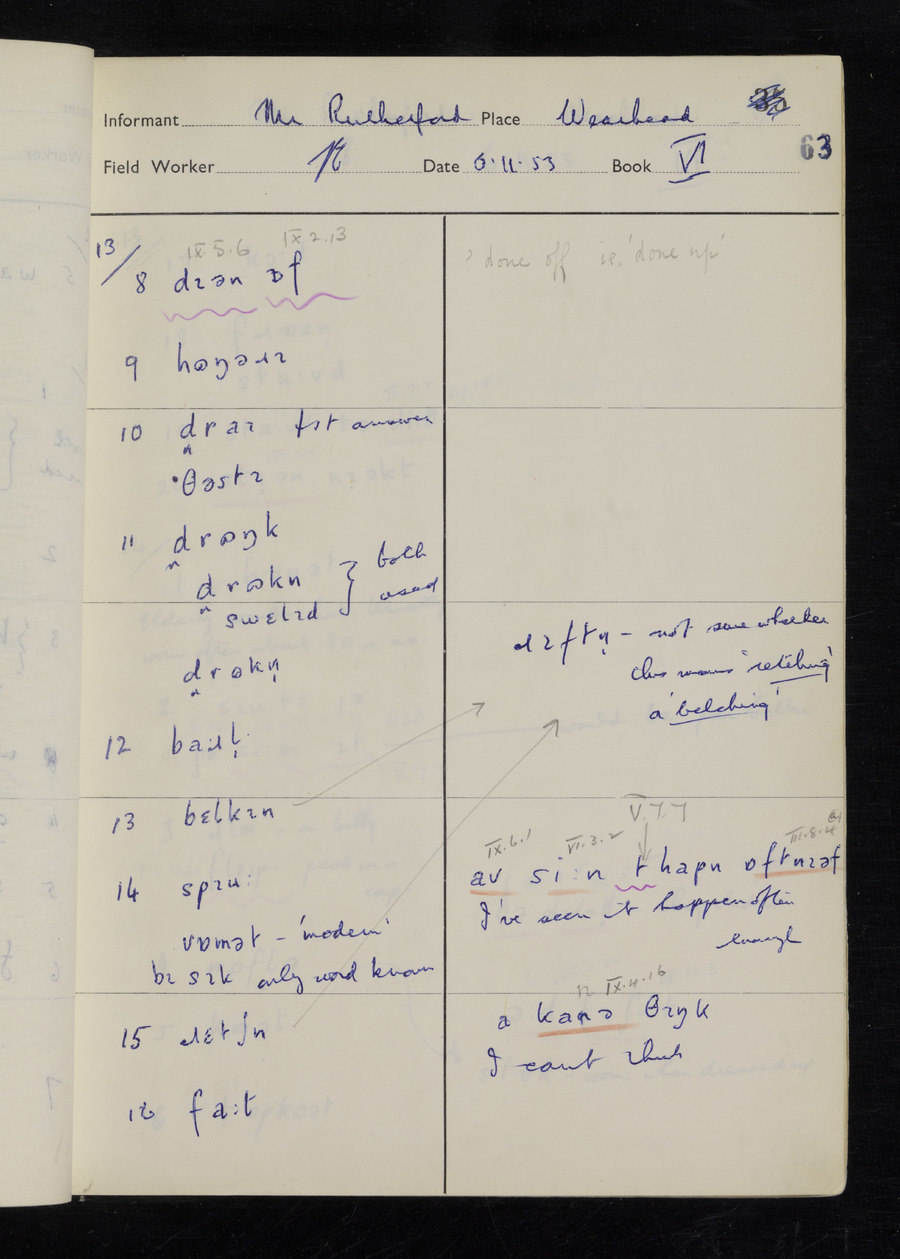 Informant Mr Rutherford Place Wearhead
63
Field Worker Date 6.11.53 Book VI
IX.5.6 IX.2.13
13/8 dɪən ɒf
? done off i.e. 'done up'
9
10 draɪ 1st answer
θəstɪ
11 drɷŋk
drɷkn } both used
swɛlɪd
drɷkn̩
ɹɪftn̩ – not sure whether
this means "retching"
or 'belching'
12
13 bɛlkɪn
V.7.7
IX.6.1 VI.3.2 III.8.4
av si:n t hapn ɒftnɪəf
I've seen it happen often
enough
14
vɒmət – 'modern'
bɪ sɪk only word known
IX.4.16
a kanə θɪŋk
I can't think
15 ɹɛtʃn
16 fa:t